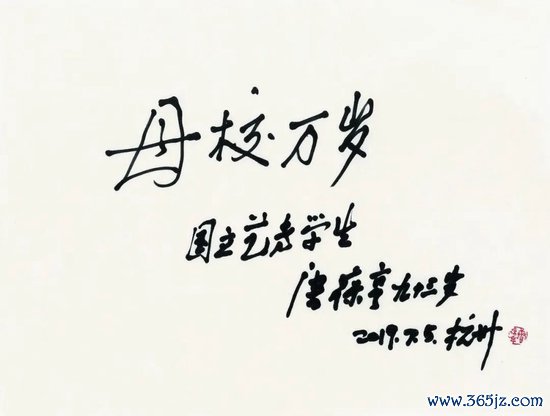 母校万岁
国立艺专学生
唐葆亨九十三岁
2019.7.5. 杭州
www.365jz.com